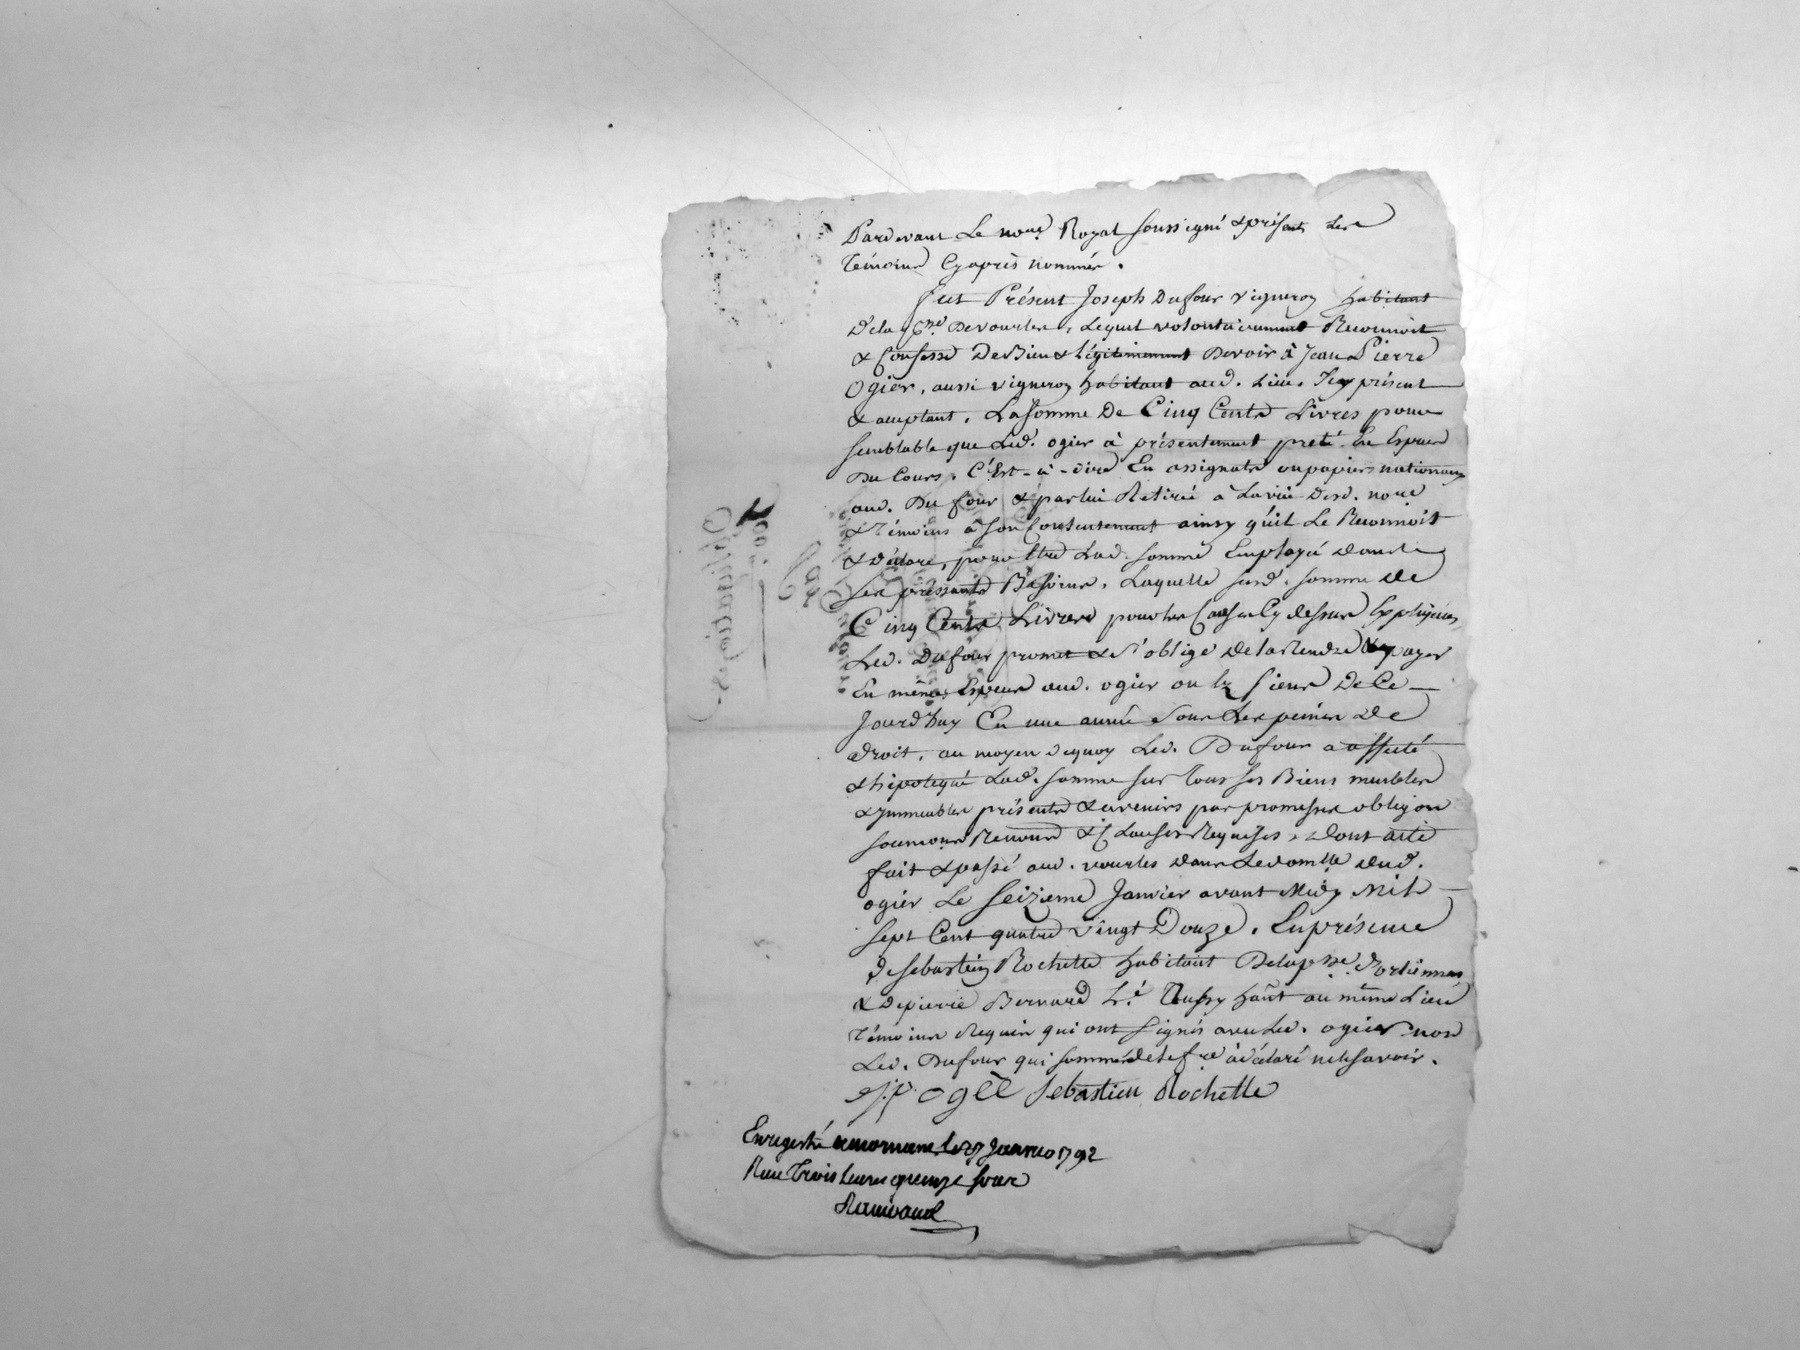 Pardevant Le nore Royal soussigné & présents Les
Témoins Cyaprès nommés.
fut Présent Joseph Dufour vigneron habitant
dela psse De vourles, Lequel volontairement Reconnoit
& Confesse De Bien & légitimement Devoir à Jean Pierre
Ogier, aussi vigneron habitant aud. Lieu, Icy présent
& acceptant, La somme De Cinq Cents Livres pour
semblable que Led. ogier à présentement preté En Espèces
Du Cours, C'Est-à-dire En assignats ou papiers nationaux
aud. Du four & par lui Retirée à La vüe Desd. nore
& Témoins à son Contentement ainsy qu'il Le Reconnoit
& déclare, pour Etre Lad. somme Employée dans
Ses pressants Besoins, Laquelle susd. somme de
Cinq Cents Livres pour les Causes Cy dessus Expliquées,
Led. Dufour promet & s'oblige de la Rendre & payer
En mêmes Espèces aud. ogier ou les siens De Ce
Jourd'huy En une année sous Les peines de
droit, au moyen dequoy Led. Dufour a affecté
& hipotequé Lad. somme sur tous ses Biens meubles
& Immeubles présents & avenirs par promesses obligõns
soumõns Renonc̃ & Clauses Requises, Dont acte
fait & passé aud. vourles dans Ledomlle dud.
ogier Le Seizieme Janvier avant Midy Mil
sept Cent quatre vingt Douze. En présence
de sebastien Rochette habitant Delapsse d'orliennas
& De pierre Bernard hãnt au même Lieu
Témoins Requis qui ont signés avec Led. ogier non
Led. Dufour qui sommé de le fre à déclaré ne le savoir.
J.P. ogéé Sebastien Rochette
Enregistré a mornant le 27 Janvier 1792
Reçu Trois Livres quinze sous